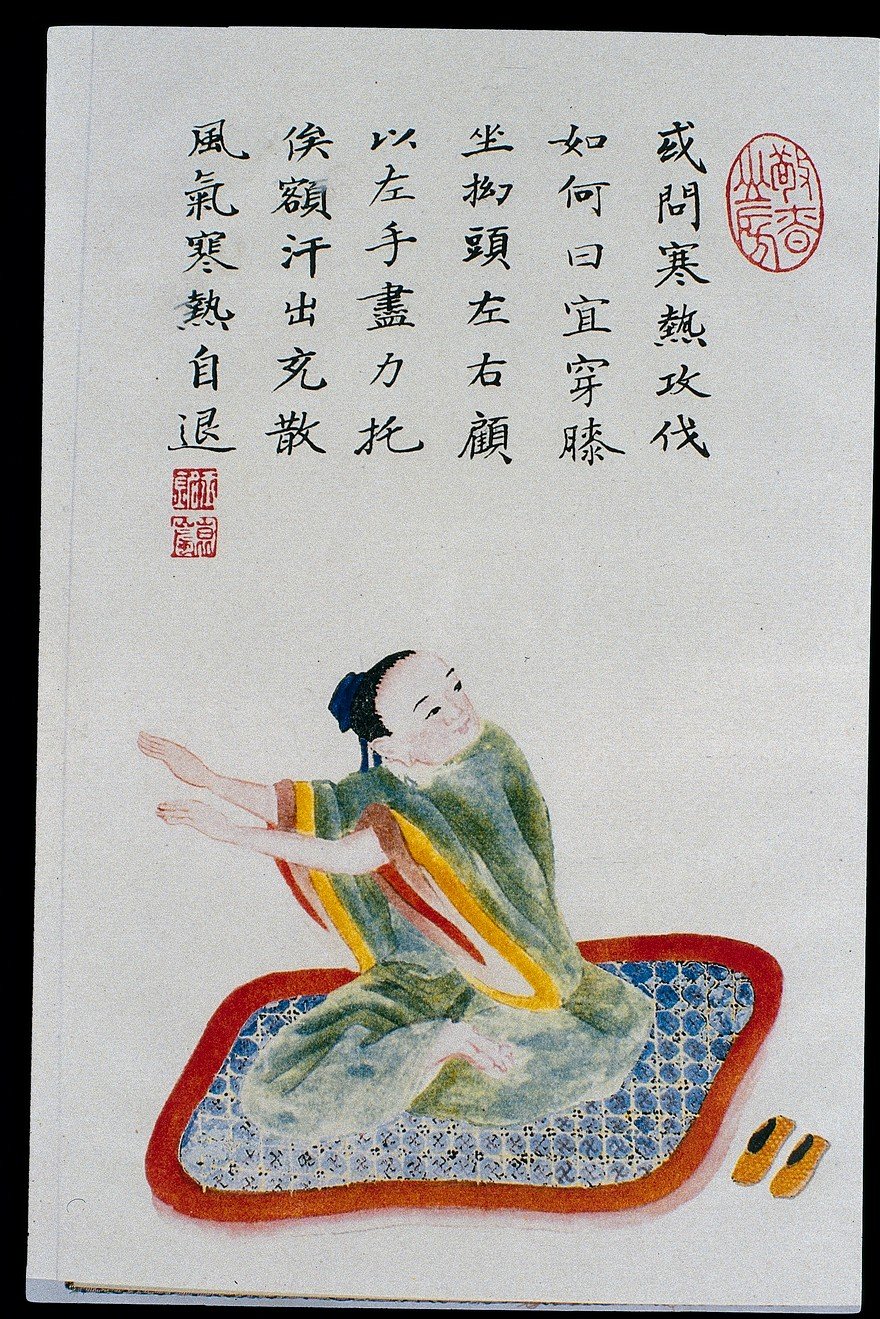 敬昚山房
或問寒熱攻伐
如何曰宜穿膝
坐拗頭左右顧
以左手盡力托
俟額汗出充散
風氣寒熱自退